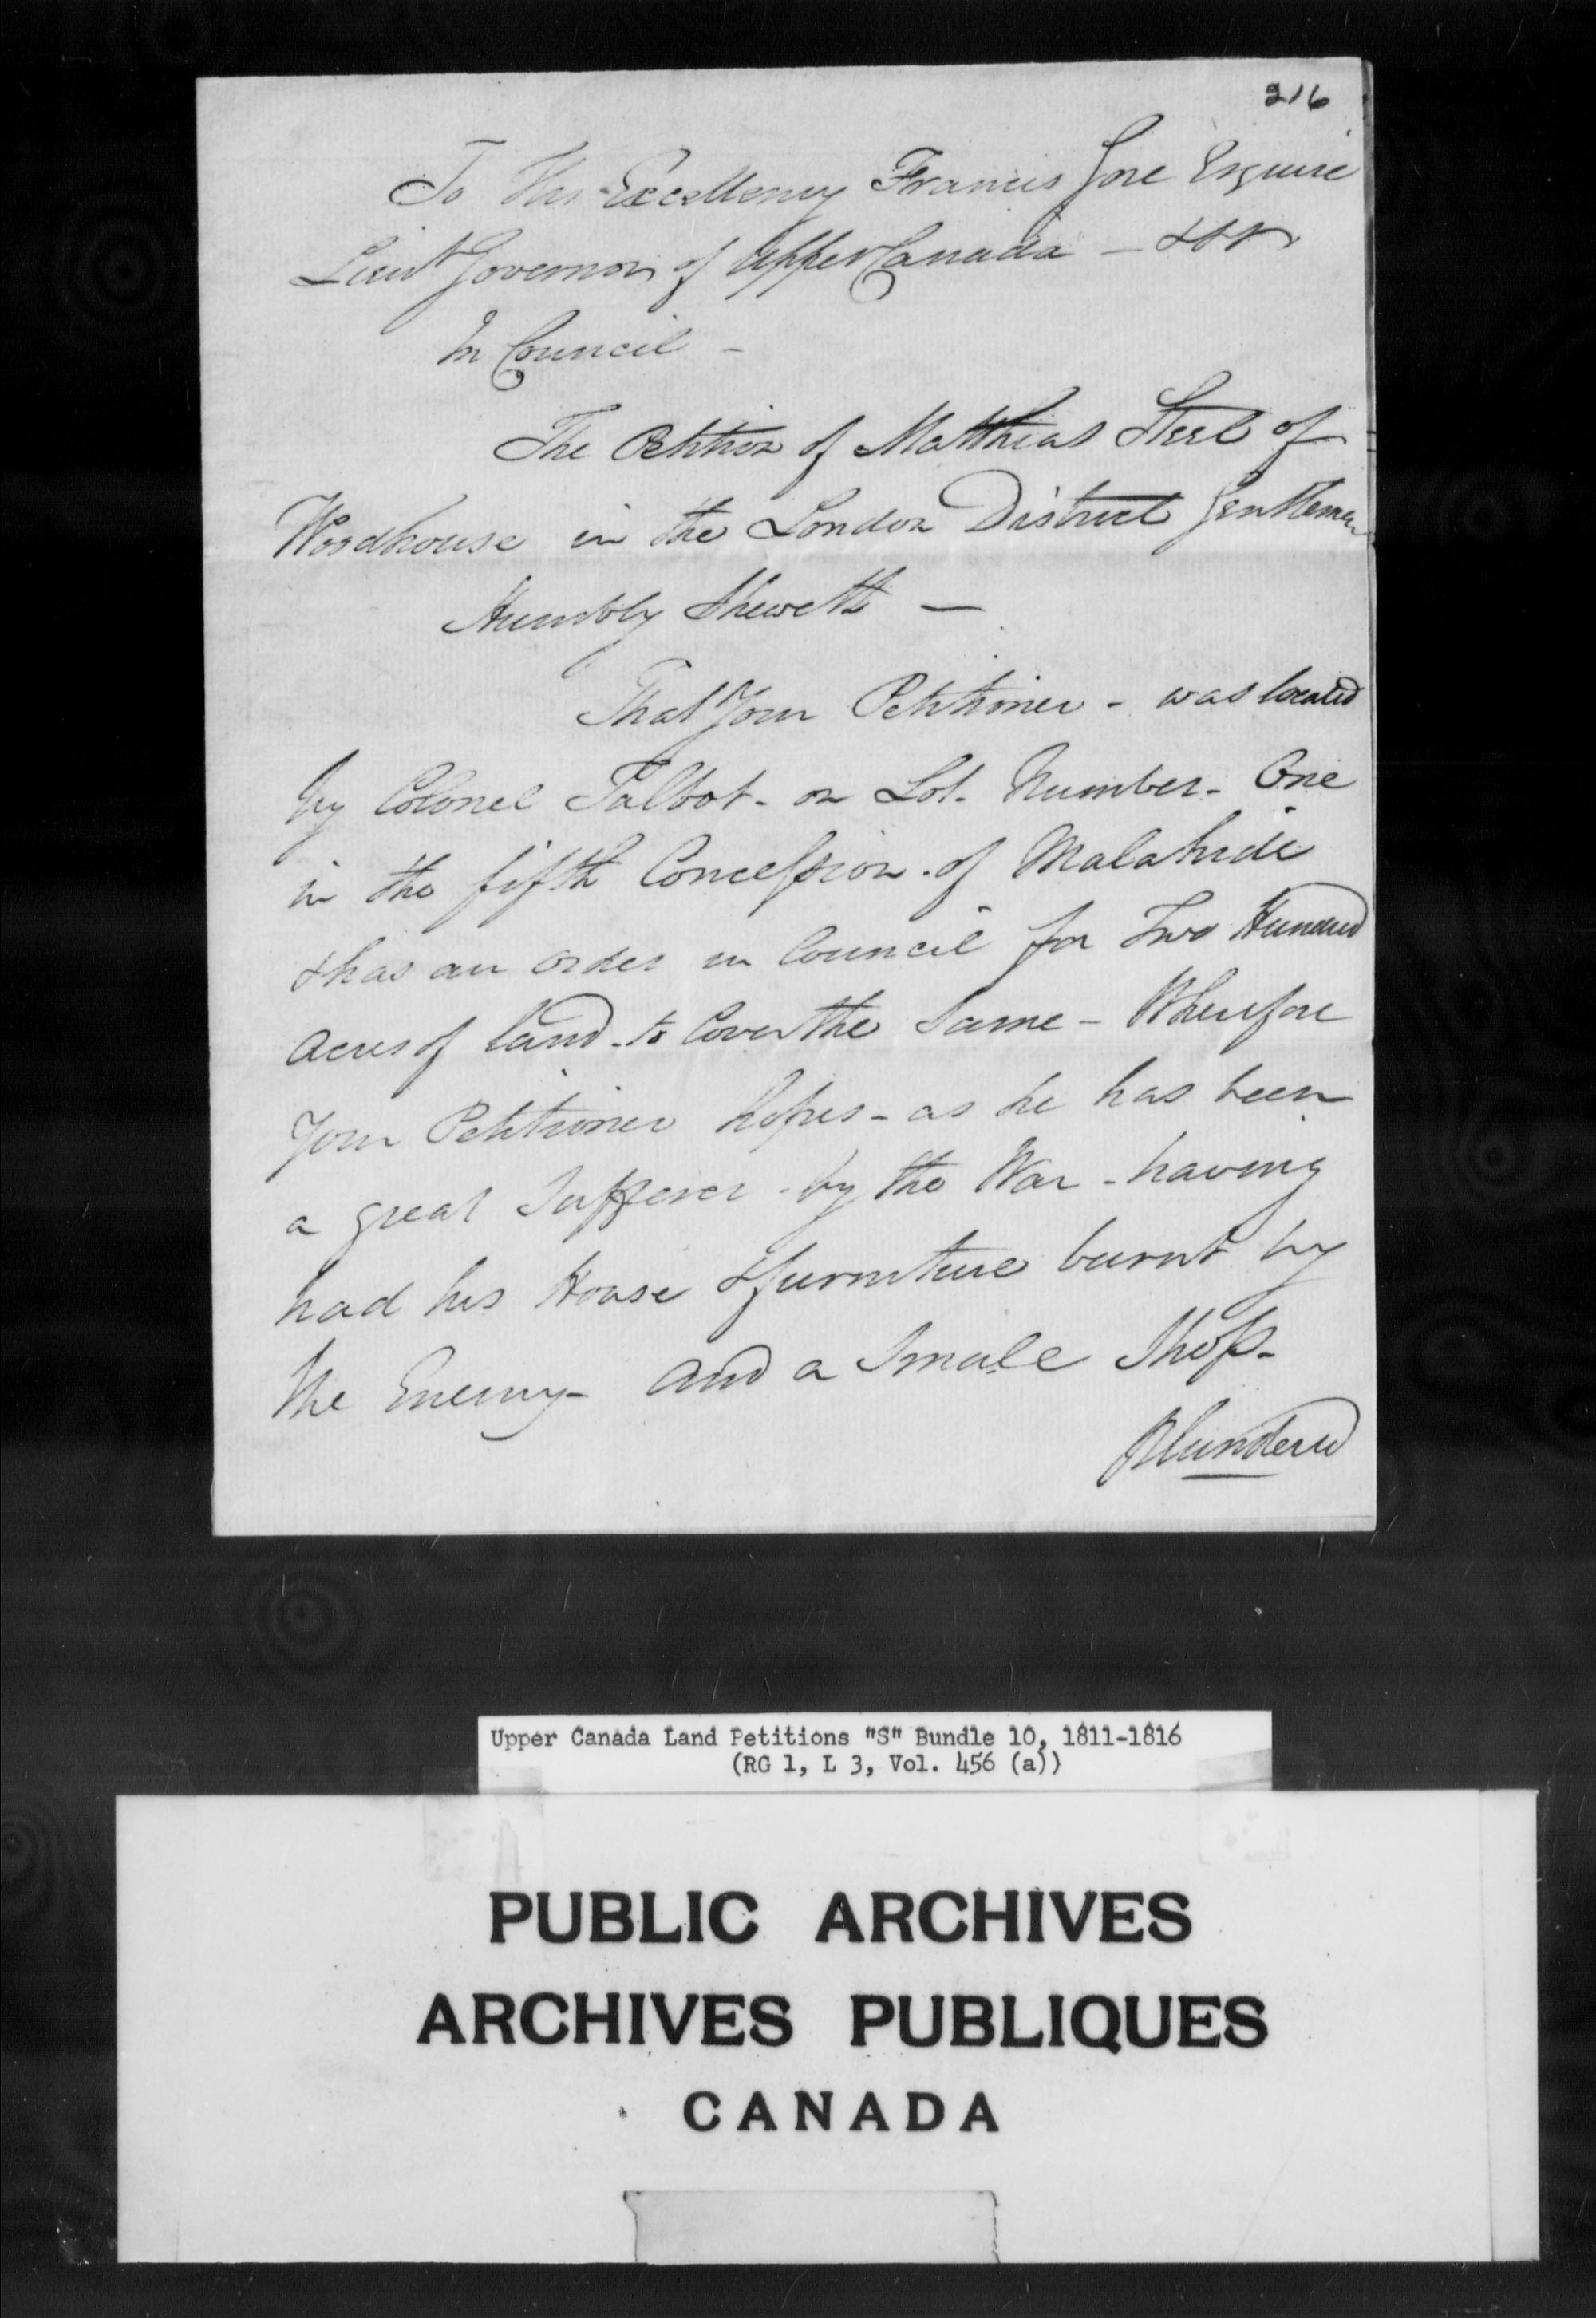 216
To His Excellency Francis Gore Esquire
Lieut Governor of Upper Canada - &&&
In Council -
The Petition of Matthias Steel of
Woodhouse in the London District Gentleman
Humbly Sheweth —
That Your Petitioner - was located
by Colonel Talbot - on Lot - Number - One
in the fifth Concession . of Malahide
& has an order in Council for Two Hundred
Acres of land - to Cover the Same - Wherefore
Your Petitioner hopes - as he has been
a great Sufferer - by the War - having
had his House & furniture burnt by
the Enemy - and a Small Shop -
Plundered
Upper Canada Land Petitions "S" Bundle 10, 1811-1816
(RG 1, L 3, Vol. 456 (a))
PUBLIC ARCHIVES
ARCHIVES PUBLIQUES
CANADA